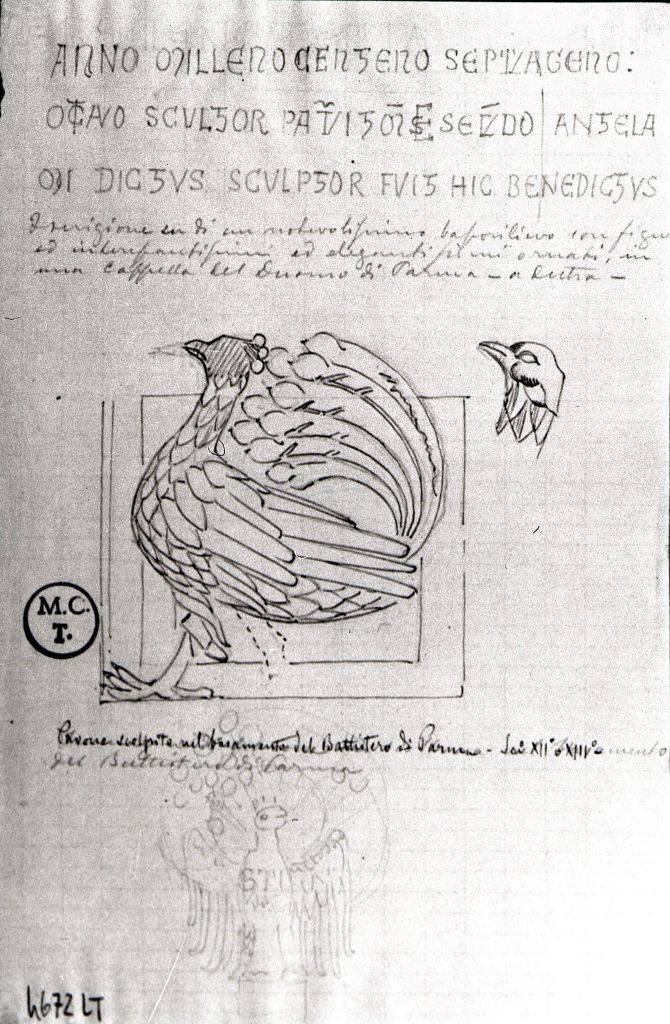 ANNO MILLENO CENTENO SEPTVAGENO:
OCTAVO SCVLTOR PAT̄VIT M̄SE SEC̄DO ANTELA
MI DICTVS SCVLPTOR FVIT HIC BENEDICTVS
Iscrizione su di un notevolissimo bassorilievo con figure
ed interessantissimi ed elegantissimi ornati, in
una Cappella del Duomo di Parma - a destra -
M.C.
T.
Pavone scolpito nel basamento del Battistero di Parma - Sec. XII° o XIII°
del Battistero di Parma
h672 LT